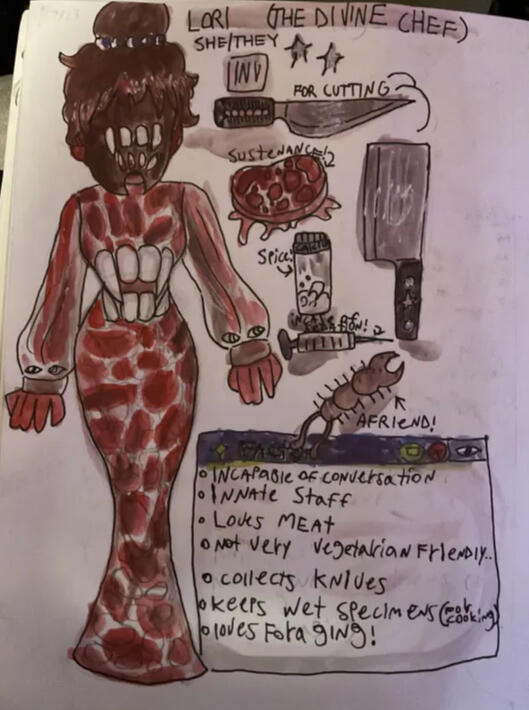 LORI (THE DIVINE CHEF)
SHE/THEY
INV
FOR CUTTING
SUSTENANCE!
Spice!
A FRIEND!
• INCAPABLE OF CONVERSATION
• INNATE STAFF
• LOVES MEAT
• NOT VERY VEGETARIAN FRIENDLY..
• COLLECTS KNIVES
• KEEPS WET SPECIMENS (FOR COOKING)
• LOVES FORAGING!